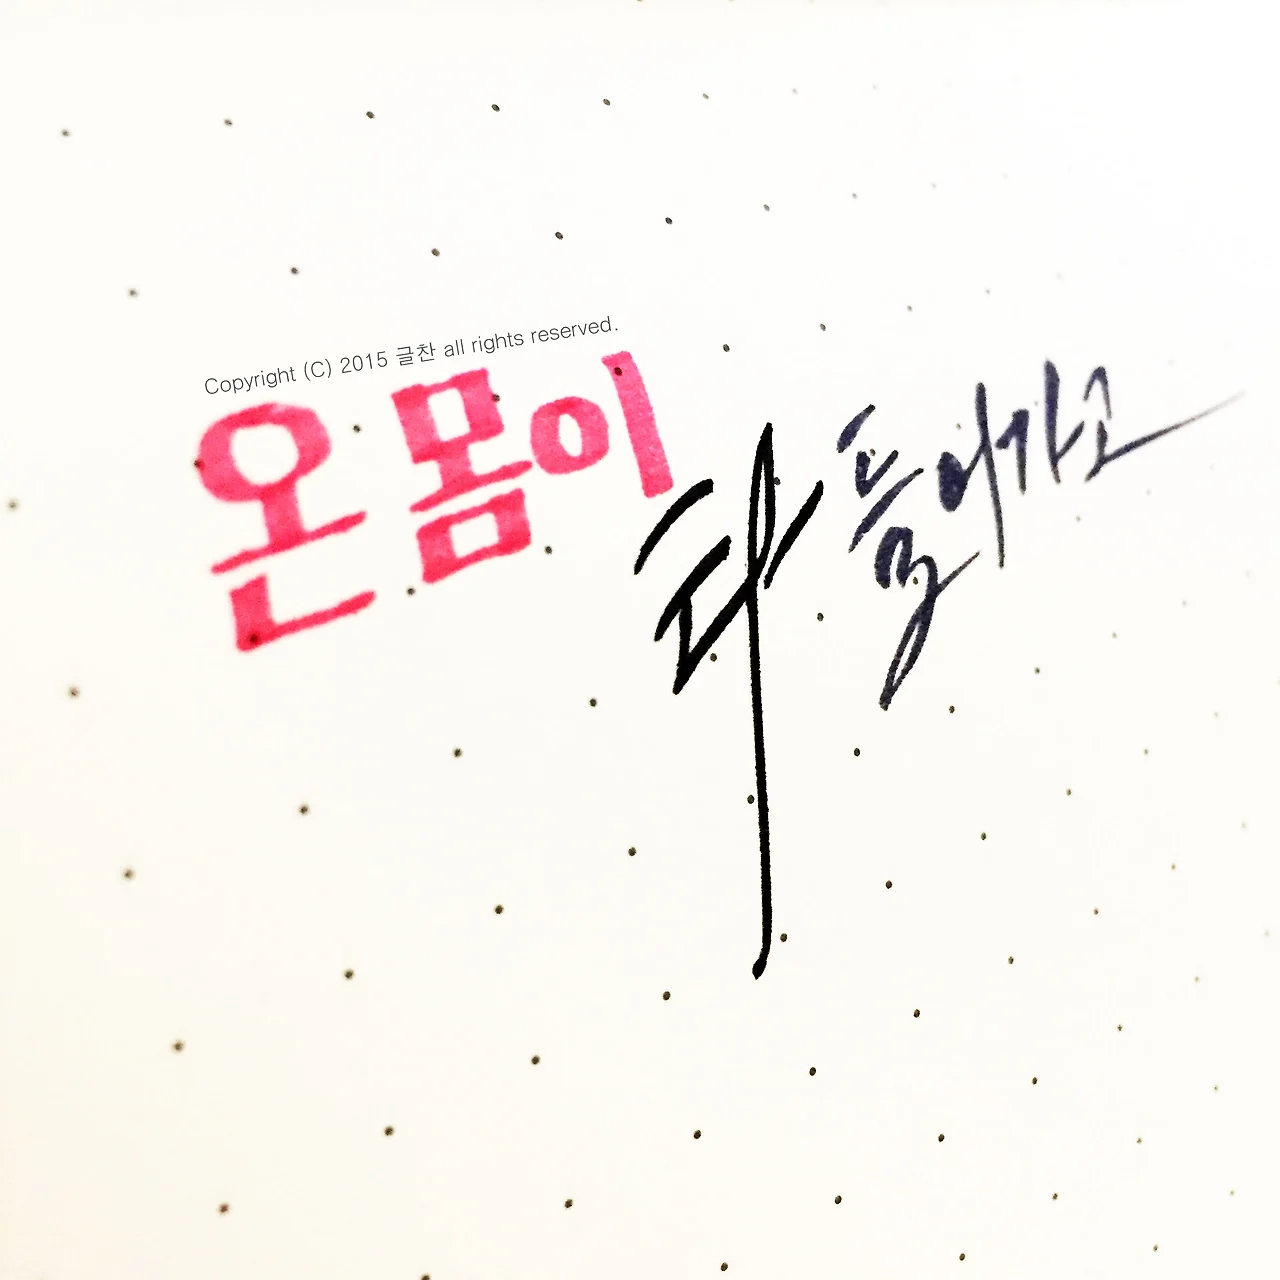 Copyright (C) 2015 글찬 all rights reserved.
온몸이 타들어가고